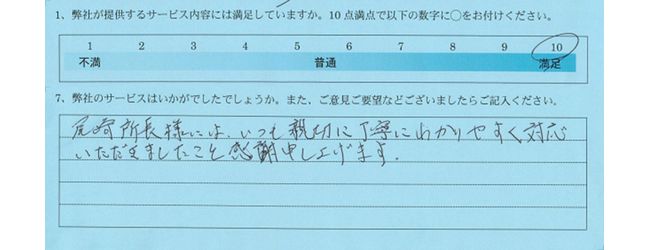 1、弊社が提供するサービス内容には満足していますか。10点満点で以下の数字に○をお付けください。
1 2 3 4 5 6 7 8 9 10
不満 普通 満足
7、弊社のサービスはいかがでしたでしょうか。また、ご意見ご要望などございましたらご記入ください。
尾崎所長様には、いつも親切に丁寧にわかりやすく対応
いただきましたこと感謝申し上げます。